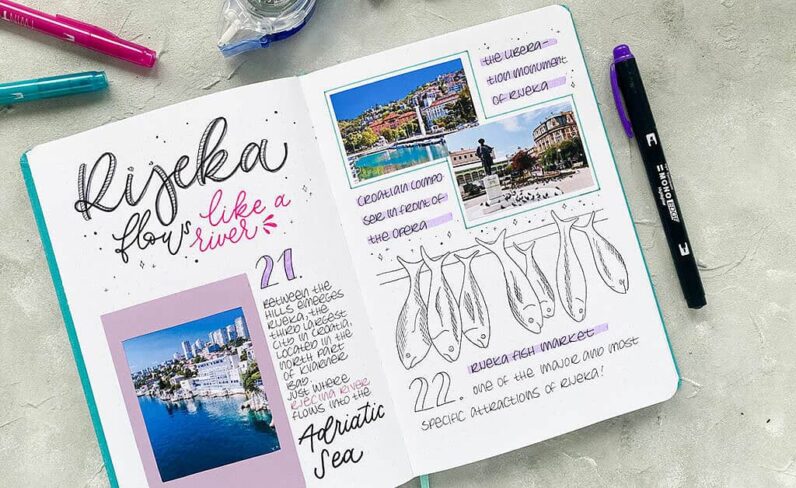 Rijeka
flows like a
river
21.
BETWEEN THE
HILLS EMERGES
RIJEKA, THE
THIRD LARGEST
CITY IN CROATIA,
LOCATED IN THE
NORTH PART
OF KVARNER
BAY
JUST WHERE
RJEČINA RIVER
FLOWS INTO THE
Adriatic
Sea
THE LIBERA-
TION MONUMENT
OF RIJEKA
CROATIAN COMPO
SER IN FRONT OF
THE OPERA
RIJEKA FISH MARKET
22. ONE OF THE MAJOR AND MOST
SPECIFIC ATTRACTIONS OF RIJEKA!
MONO